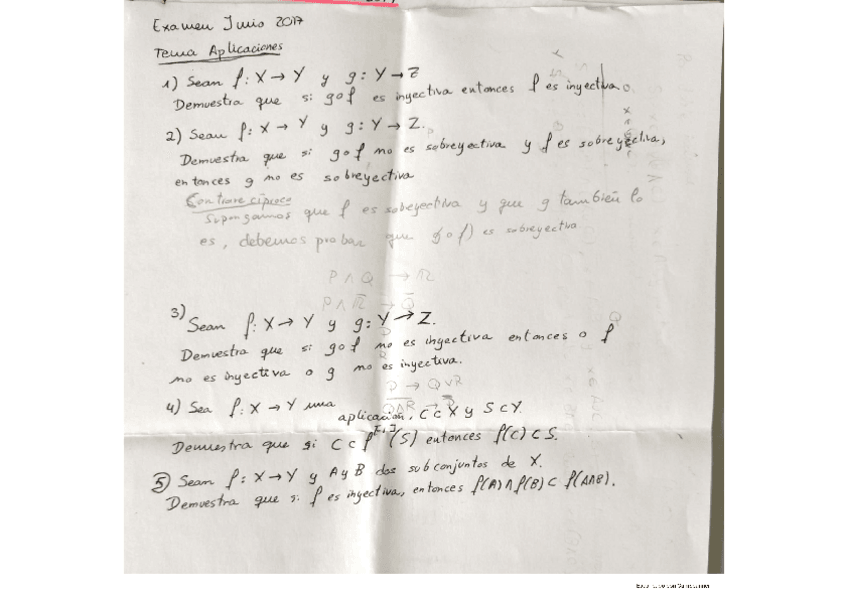 Examen Junio 2017
Tema Aplicaciones
1) Sean f: X → Y y g: Y → Z
Demuestra que si g o f es inyectiva entonces f es inyectiva.
2) Sean f: X → Y y g: Y → Z.
Demuestra que si g o f no es sobreyectiva y f es sobreyectiva,
entonces g no es sobreyectiva
Contrarecíproco
Supongamos que f es sobreyectiva y que g también lo
es, debemos probar que g o f) es sobreyectiva
P ∧ Q → R
P ∧ R̅ → Q̅
3) Sean f: X → Y y g: Y → Z.
Demuestra que si g o f no es inyectiva entonces o f
no es inyectiva o g no es inyectiva.
P → Q ∨ R
4) Sea f: X → Y una aplicación, C ⊂ X y S ⊂ Y.
Demuestra que si C ⊂ f[-1](S) entonces f(C) ⊂ S.
5) Sean f: X → Y y A y B dos subconjuntos de X.
Demuestra que si f es inyectiva, entonces f(A) ∩ f(B) ⊂ f(A∩B).